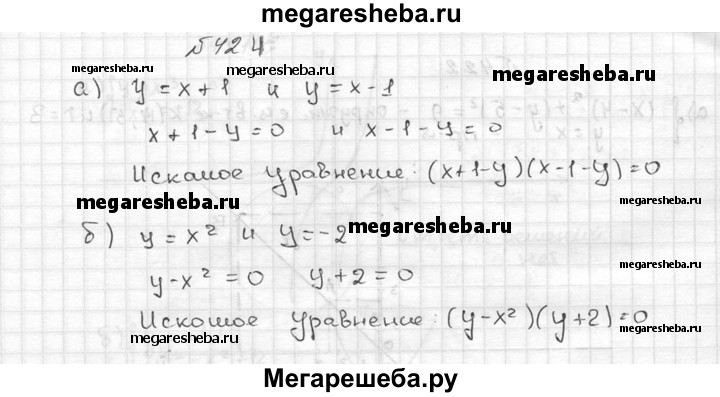 megaresheba.ru
№424
megaresheba.ru megaresheba.ru megaresheba.ru
а) y = x+1 и y = x-1
x+1-y=0 и x-1-y=0
Искамое уравнение: (x+1-y)(x-1-y)=0
megaresheba.ru megaresheba.ru megaresheba.ru
б) y = x² и y = -2
y-x² = 0 y+2=0
Искомое уравнение: (y-x²)(y+2)=0
megaresheba.ru
Мегарешеба.ру